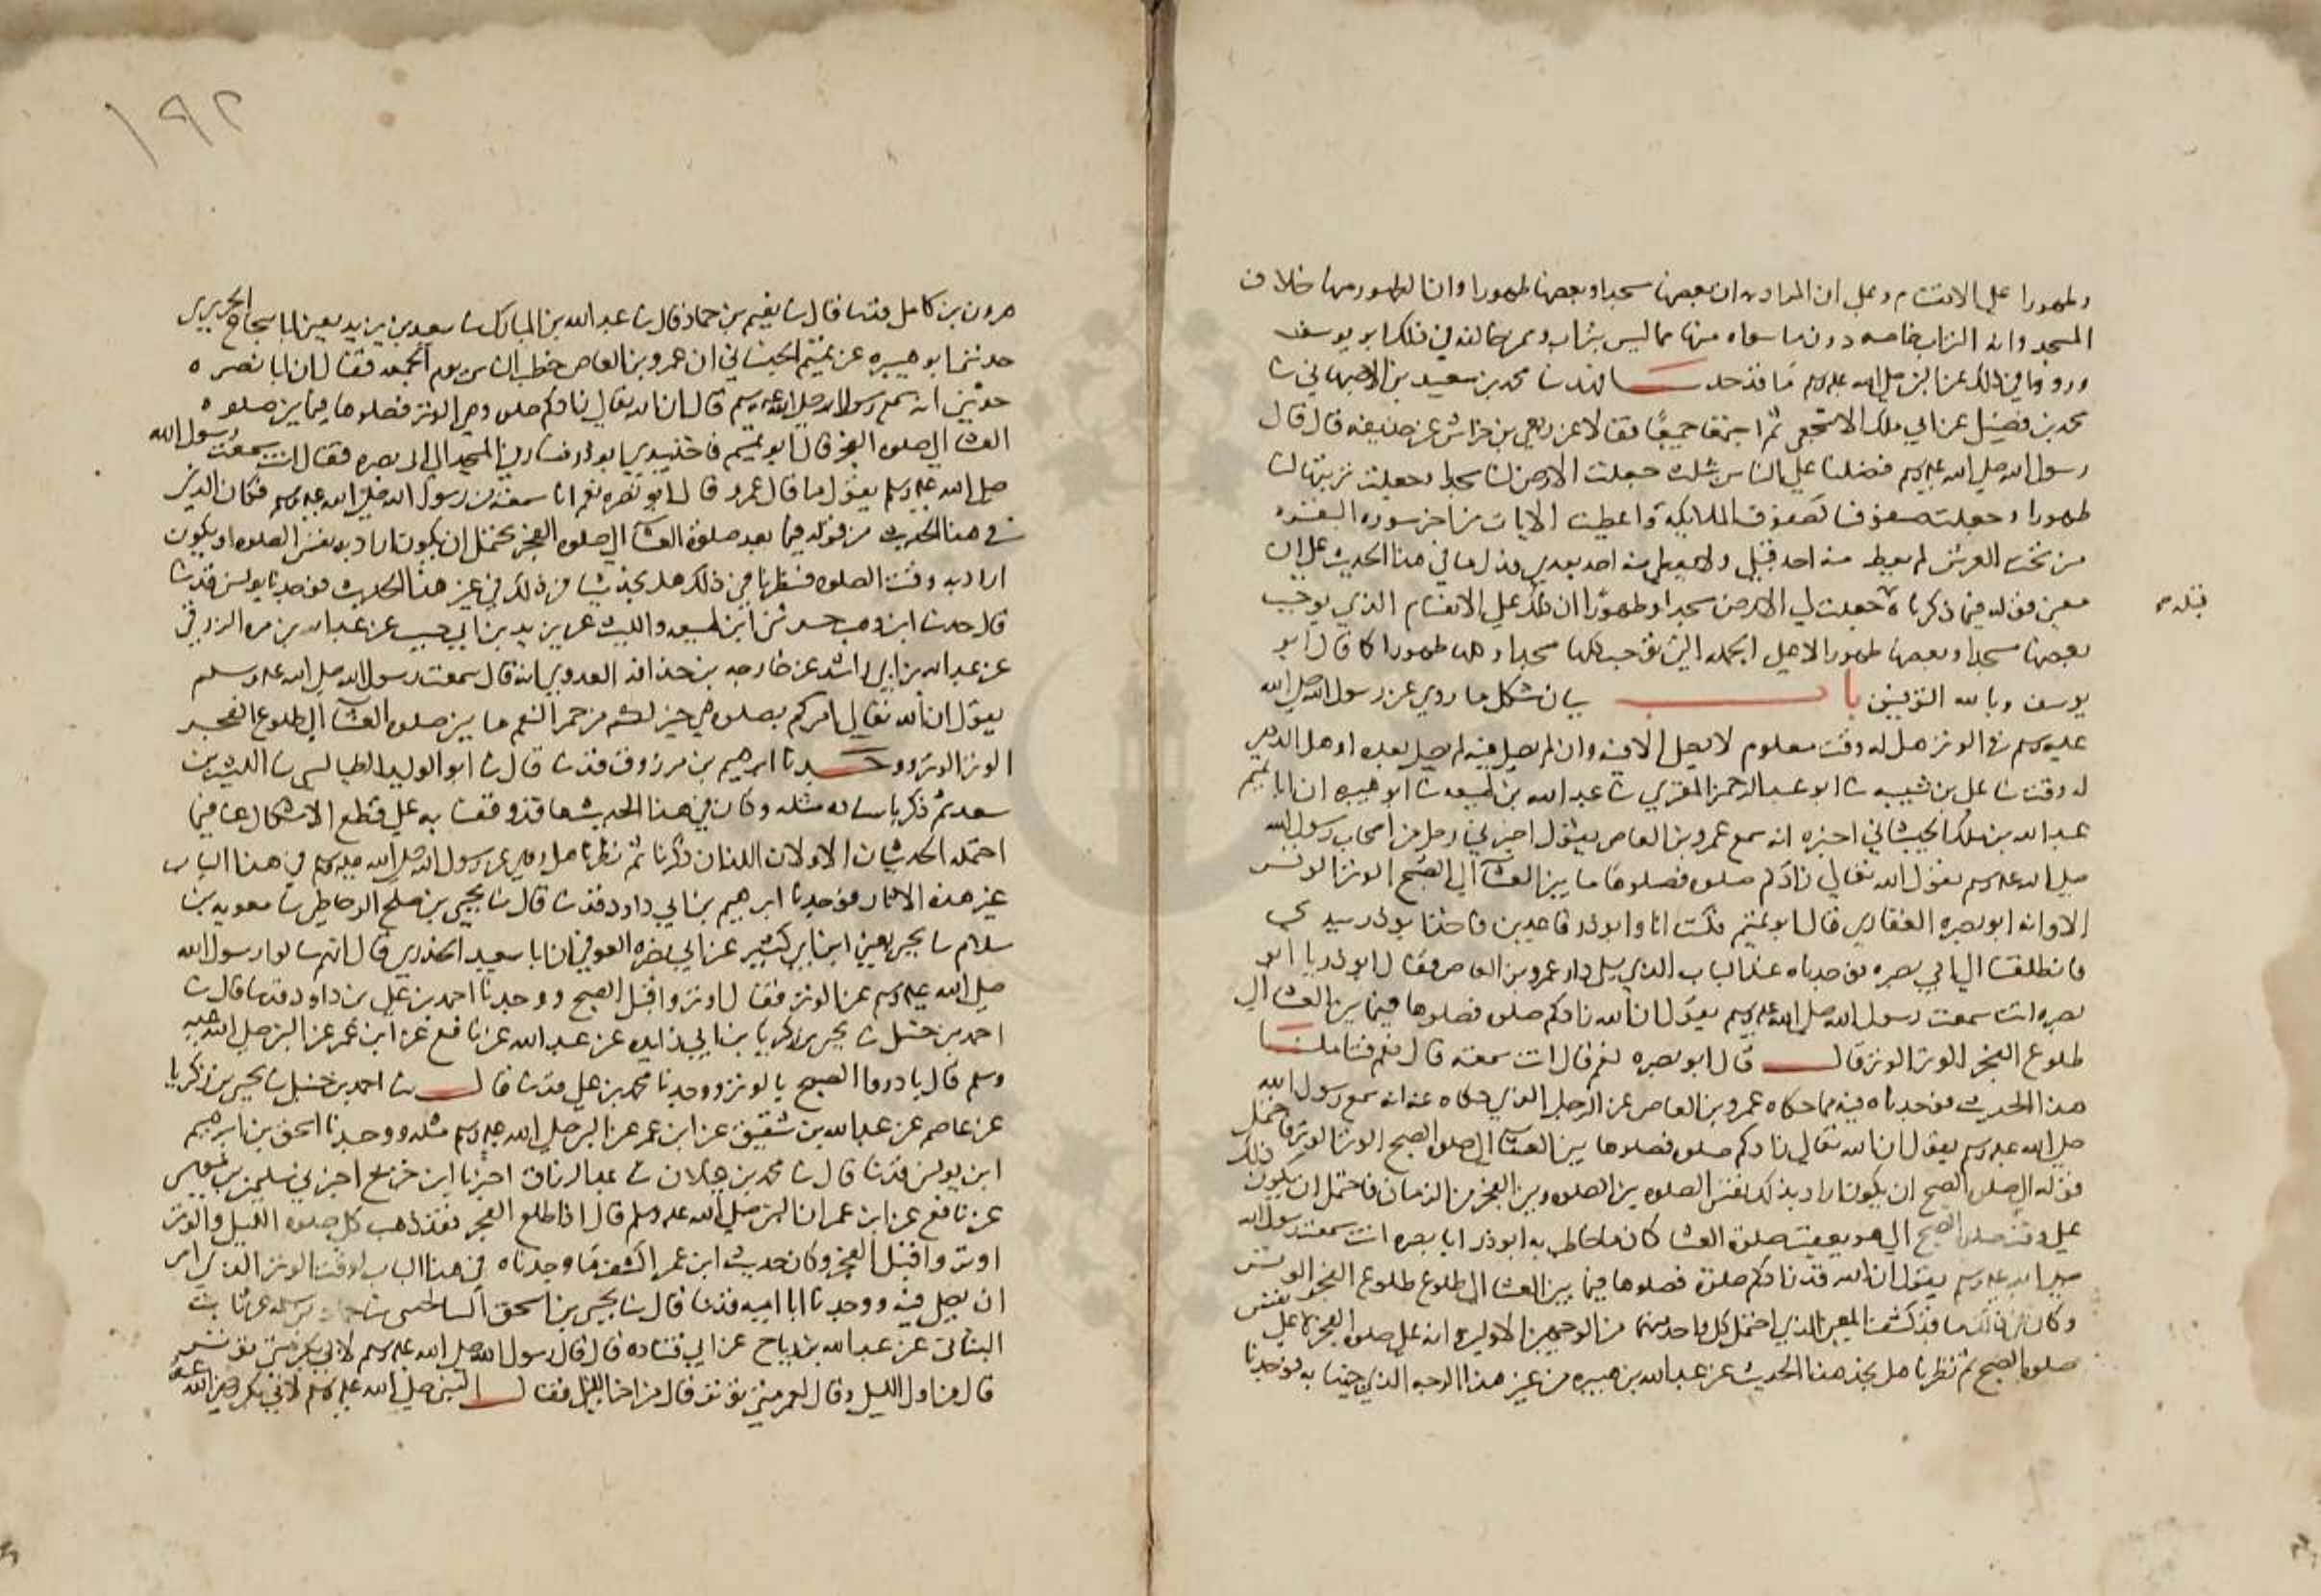 وطهورا على الاقتسام وعلى ان المراد به ان بعضها مسجدا وبعضها طهورا وان الطهور منها خلاف
المسجد وانه التراب خاصة دون ما سواه منها مما ليس بتراب وممن خالفه في ذلك ابو يوسف
وروو في ذلك عن النبي صلى الله عليه وسلم ما قد حدثنا فهد ثنا محمد بن سعيد بن الاصبهاني ثنا
محمد بن فضيل عن ابي ملك الاشجعي ثم اجتمعا جميعا فقالا عن ربعي بن حراش عن حذيفة قال قال
رسول الله صلى الله عليه وسلم فضلنا على الناس بثلث جعلت الارض لنا مسجدا وجعلت تربتها لنا
طهورا وجعلت صفوفنا كصفوف الملايكة واعطيت الايات من اخر سورة البقرة
من تحت العرش لم يعط منه احد قبلي ولا يعطى منه احد بعدي فدل ما في هذا الحديث على ان
معنى قوله فيما ذكرناه جعلت لي الارض مسجدا وطهورا ان ذلك على الاقتسام الذي يوجب
قبله
بعضها مسجدا وبعضها طهورا لا على الجملة التي توجب كلها مسجدا وكلها طهورا كما قال ابو
يوسف وبالله التوفيق باب بيان مشكل ما روي عن رسول الله صلى الله
عليه وسلم في الوتر هل له وقت معلوم لا يصلى الا فيه وان لم يصل فيه لم يصل بعده او هل الدهر
له وقت ثنا علي بن شيبة ثنا ابو عبد الرحمن المقري ثنا عبد الله بن لهيعة ثنا ابو هبيرة ان ابا تميم
عبد الله بن ملك الجيشاني اخبره انه سمع عمرو بن العاص يقول اخبرني رجل من اصحاب رسول الله
صلى الله عليه وسلم يقول الله تعالى زادكم صلوة فصلوها ما بين العشا الى الصبح الوتر الوتر
الا وانه ابو بصرة الغفاري قال ابو تميم فكنت انا وابو ذر قاعدين فاخذ ابو ذر بيدي
فانطلقنا الى ابي بصرة فوجدناه عند الباب الذي يلي دار عمرو بن العاص فقال ابو ذر يا ابو
بصرة انت سمعت رسول الله صلى الله عليه وسلم يقول ان الله زادكم صلوة فصلوها فيما بين العشا الى
طلوع الفجر الوتر الوتر قال قال ابو بصرة نعم قال انت سمعته قال نعم فتاملنا
هذا الحديث فوجدناه فيه مما حكاه عمرو بن العاص عن الرجل الذي حكاه عنه انه سمع رسول الله
صلى الله عليه وسلم يقول ان الله تعالى زادكم صلوة فصلوها بين العشا الى صلوة الصبح الوتر الوتر فاحتمل
قوله الى صلوة الصبح ان يكون اراد بذلك نفس الصلوة بين الصلوة وبين الفجر من الزمان فاحتمل ان يكون ذلك
على وقت صلوة الصبح الى هو بعقيب صلوة العشا كان ما خاطب به ابو ذر ابا بصرة انت سمعت رسول الله
صلى الله عليه وسلم يقول ان الله قد زادكم صلوة فصلوها فيما بين العشا الى طلوع طلوع الفجر الوتر
وكان في ذلك ما قد كشف المعنى الذي احتمل كل واحد منهما من الوجهين الاولين انه على صلوة الفجر لا على نفس
صلوة الصبح ثم نظرنا هل نجد هذا الحديث عن عبد الله بن هبيرة من غير هذا الوجه الذي جينا به فوجدنا
١٩٢
هرون بن كامل قد ثنا قال ثنا نعيم بن حماد قال ثنا عبد الله بن المبارك ثنا سعيد بن يزيد يعني ابا شجاع الحميري
حدثني ابو هبيرة عن تميم الجيشاني ان عمرو بن العاص خطب الناس يوم الجمعة فقال ان ابا بصرة
حدثني انه سمع رسول الله صلى الله عليه وسلم قال ان الله تعالى زادكم صلوة وهي الوتر فصلوها فيما بين صلوة
العشا الى صلوة الفجر قال ابو تميم فاخذ بيدي ابو ذر فسار في المسجد الى ابي بصرة فقال انت سمعت رسول الله
صلى الله عليه وسلم يقول ما قال عمرو قال ابو بصرة نعم انا سمعته من رسول الله صلى الله عليه وسلم فكان الذي
في هذا الحديث من قوله فيما بعد صلوة العشا الى صلوة الفجر يحتمل ان يكون اراد به نفس الصلوة او يكون
اراد به وقت الصلوة فنظرنا في ذلك هل نجد شيا من ذلك في غير هذا الحديث فوجدنا يونس قد ثنا
قال حدثنا ابن وهب حدثني ابن لهيعة والليث عن يزيد بن ابي حبيب عن عبد الله بن مرة الزرقي
عن عبد الله بن ابي راشد عن خارجة بن حذافة العدوي انه قال سمعت رسول الله صلى الله عليه وسلم
يقول ان الله تعالى امركم بصلوة هي خير لكم من حمر النعم ما بين صلوة العشا الى طلوع الفجر
الوتر الوتر ووحدثنا ابرهيم بن مرزوق قد ثنا قال ثنا ابو الوليد الطيالسي ثنا الليث بن
سعد ثم ذكر باسناده مثله وكان في هذا الحديث ما قد وقفنا به على قطع الاشكال عما فيما
احتمله الحديثان الاولان اللذان ذكرنا ثم نظرنا هل روي عن رسول الله صلى الله عليه وسلم في هذا الباب
غير هذه الاثار فوجدنا ابرهيم بن ابي داود قد ثنا قال ثنا يحيى بن صلح الوحاظي ثنا معوية بن
سلام ثنا يحيى يعني ابن ابي كثير عن ابي نضرة العوفي ان ابا سعيد الخدري قال انهم سالوا رسول الله
صلى الله عليه وسلم عن الوتر فقال اوتروا قبل الصبح ووجدنا احمد بن علي بن داود قد ثنا قال ثنا
احمد بن حنبل ثنا يحيى بن زكريا بن ابي زايدة عن عبد الله عن نافع عن ابن عمر عن النبي صلى الله عليه
وسلم قال بادروا الصبح بالوتر ووجدنا محمد بن علي قد ثنا قال ثنا احمد بن حنبل ثنا يحيى بن زكريا
عن عاصم عن عبد الله بن شقيق عن ابن عمر عن النبي صلى الله عليه وسلم مثله ووجدنا اسحق بن ابرهيم
ابن يونس قد ثنا قال ثنا محمد بن غيلان ثنا عبد الرزاق اخبرنا ابن جريج اخبرني سليمن بن موسى
عن نافع عن ابن عمر ان النبي صلى الله عليه وسلم قال اذا طلع الفجر فقد ذهب كل صلوة الليل والوتر
اوتروا قبل الفجر وكان حديث ابن عمر اكشف ما وجدناه في هذا الباب لوقت الوتر الذي امر
ان يصلى فيه ووجدنا ابا امية قد ثنا قال ثنا يحيى بن اسحق السالحيني ثنا حماد بن سلمة عن ثابت
البناني عن عبد الله بن رباح عن ابي قتادة قال قال رسول الله صلى الله عليه وسلم لابي بكر متى توتر
قال من اول الليل وقال لعمر متى توتر قال من اخر الليل فقال النبي صلى الله عليه وسلم لابي بكر رضي الله عنه